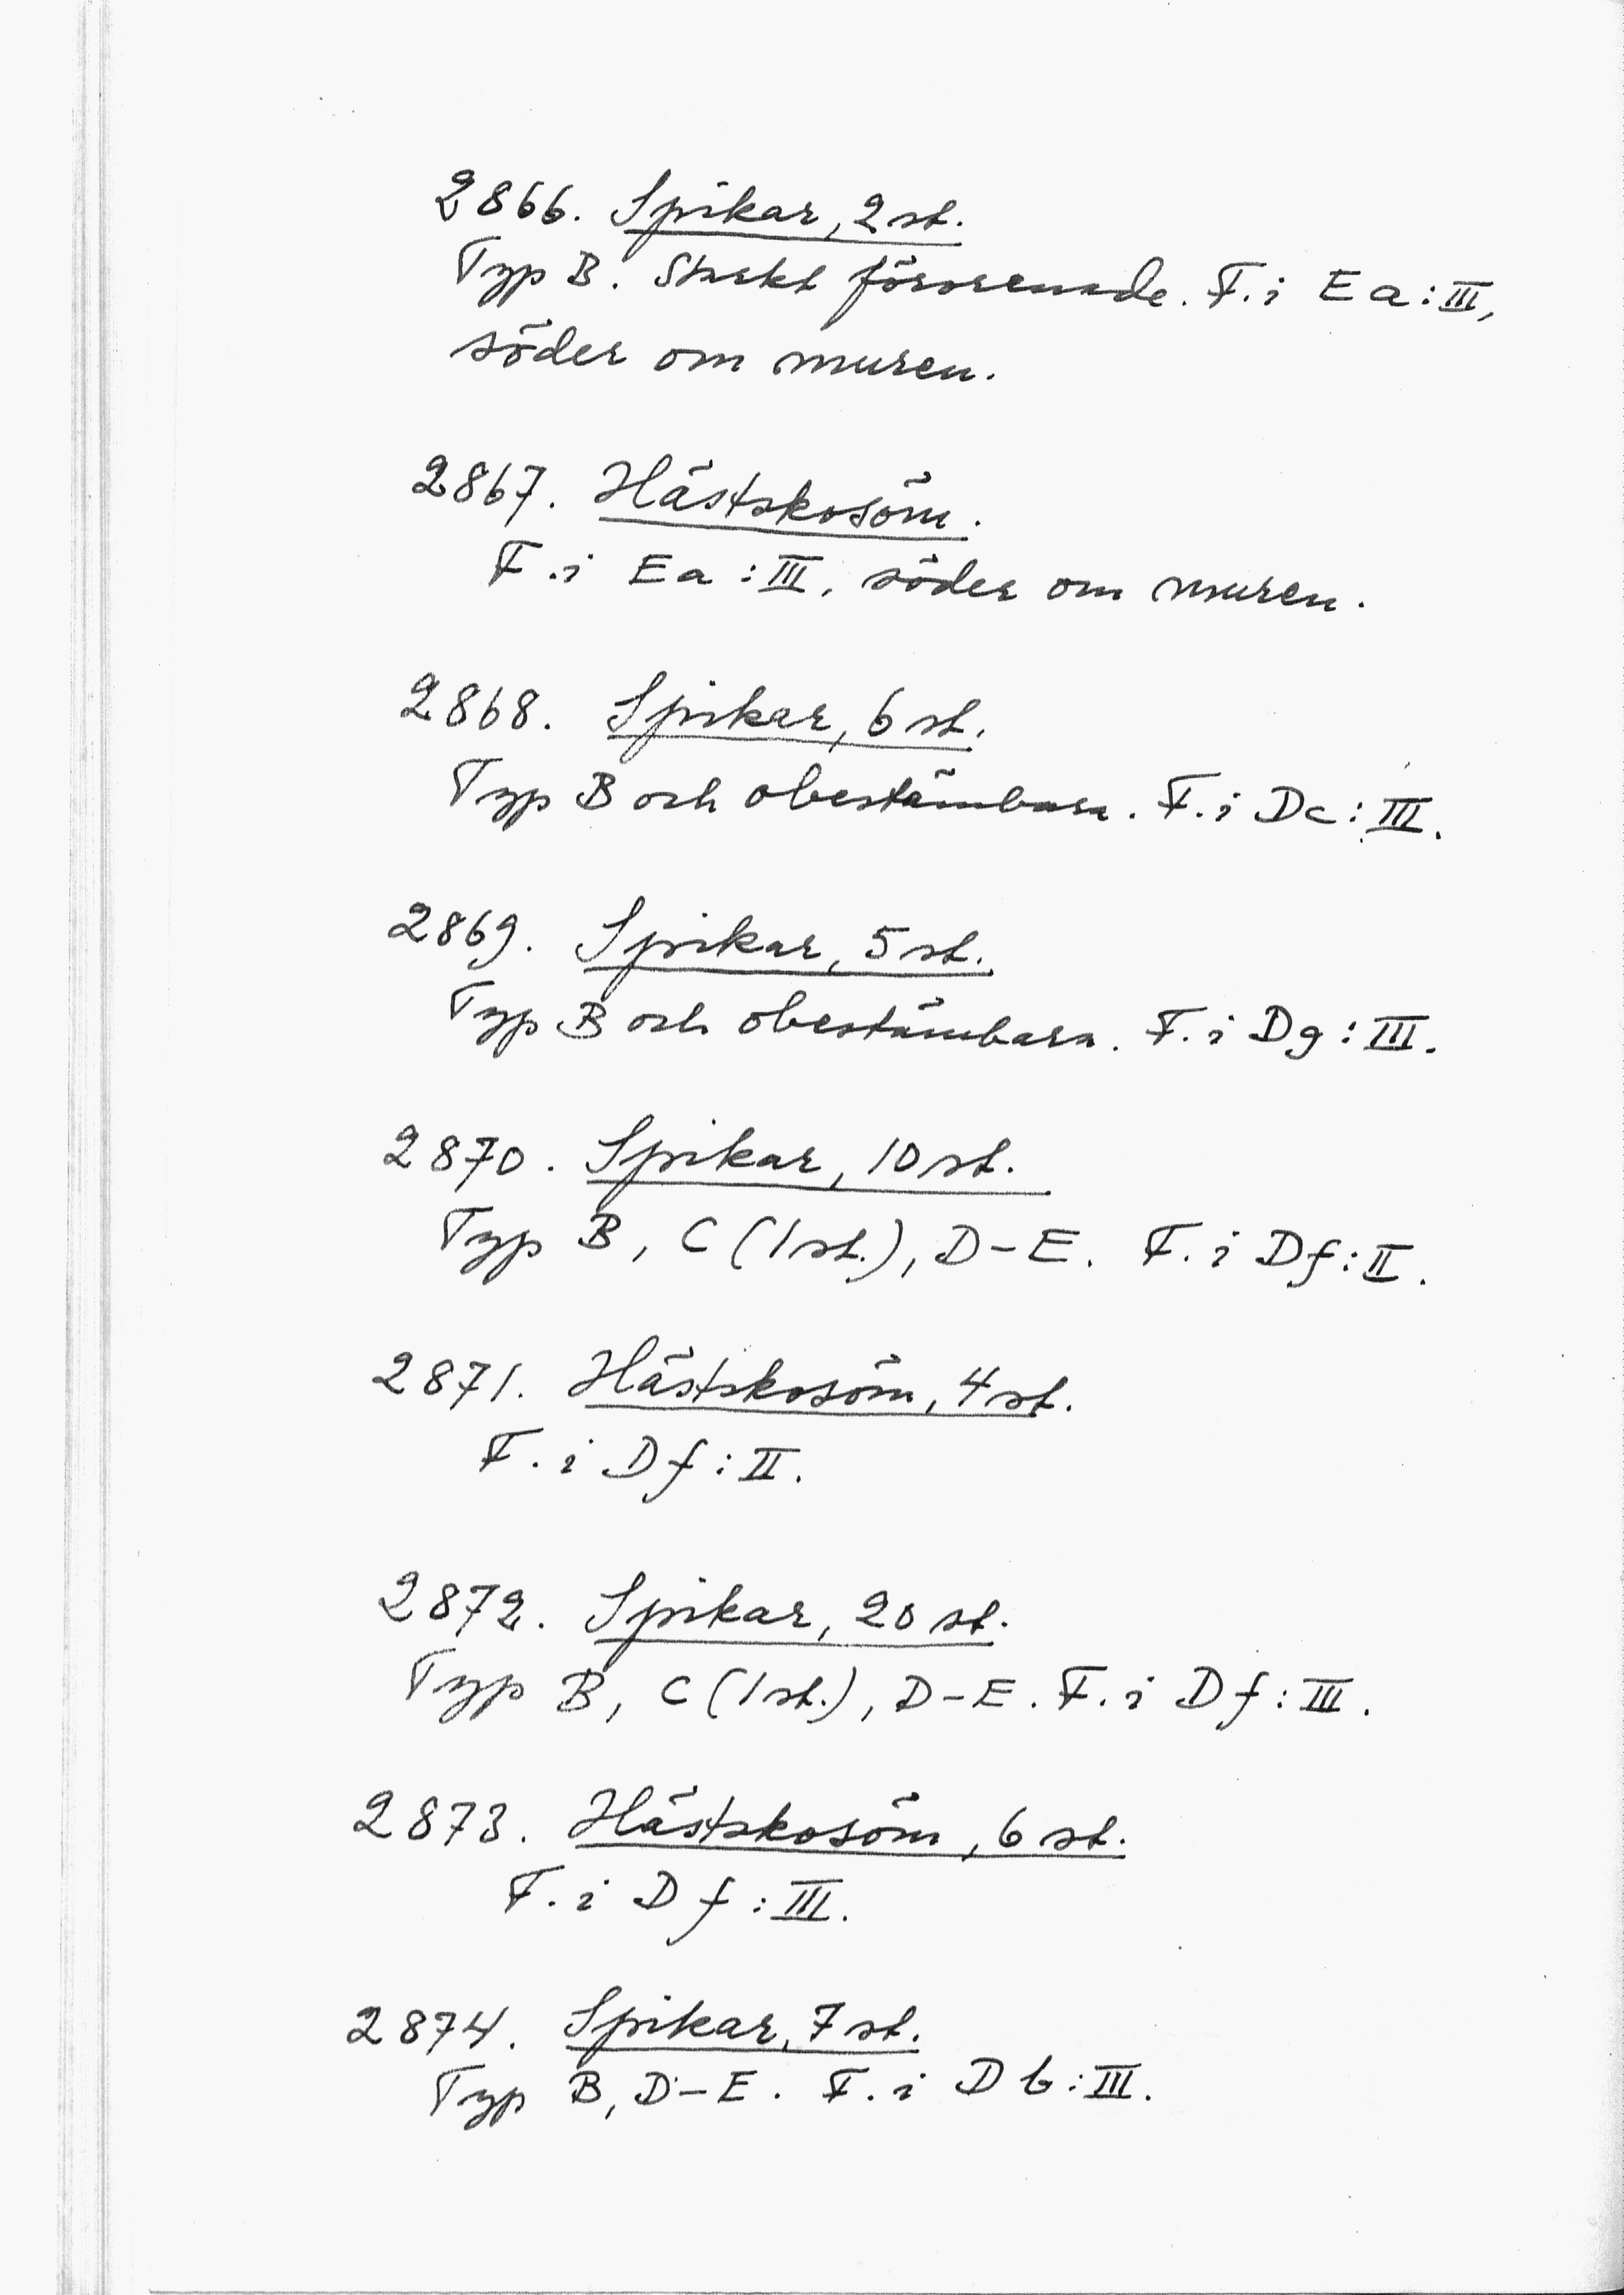 2866. Spikar, 2 st.
Typ B. Starkt förorenade. F. i Ea:III,
söder om muren.
2867. Hästskosöm.
F. i Ea:III, söder om muren.
2868. Spikar, 6 st.
Typ B och obestämbara. F. i Dc:III.
2869. Spikar, 5 st.
Typ B och obestämbara. F. i Dg:III.
2870. Spikar, 10 st.
Typ B, C (1 st.), D-E. F. i Df:II.
2871. Hästskosöm, 4 st.
F. i Df:II.
2872. Spikar, 20 st.
Typ B, C (1 st.), D-E. F. i Df:III.
2873. Hästskosöm, 6 st.
F. i Df:III.
2874. Spikar, 7 st.
Typ B, D-E. F. i Db:III.